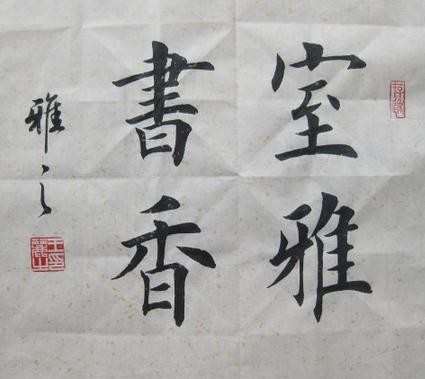 室雅
書香
雅之